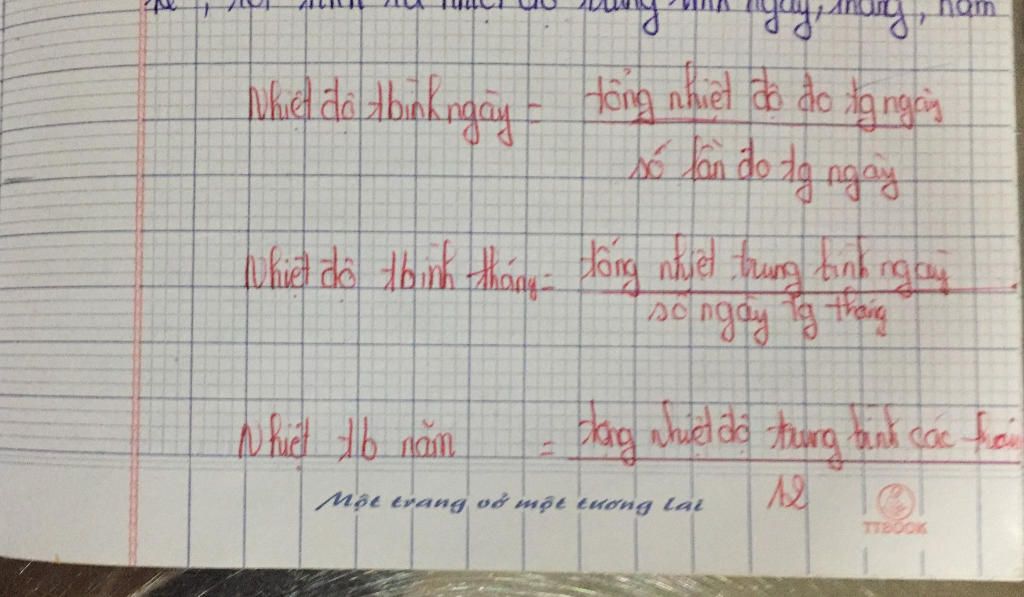 ngày, tháng, năm
Nhiệt độ tbình ngày = tổng nhiệt độ đo tg ngày
số lần đo tg ngày
Nhiệt độ tbình tháng = tổng nhiệt trung bình ngày
số ngày tg tháng
Nhiệt tb năm = tổng nhiệt độ trung bình các
12
Một trang vở một tương lai
TTBOOK